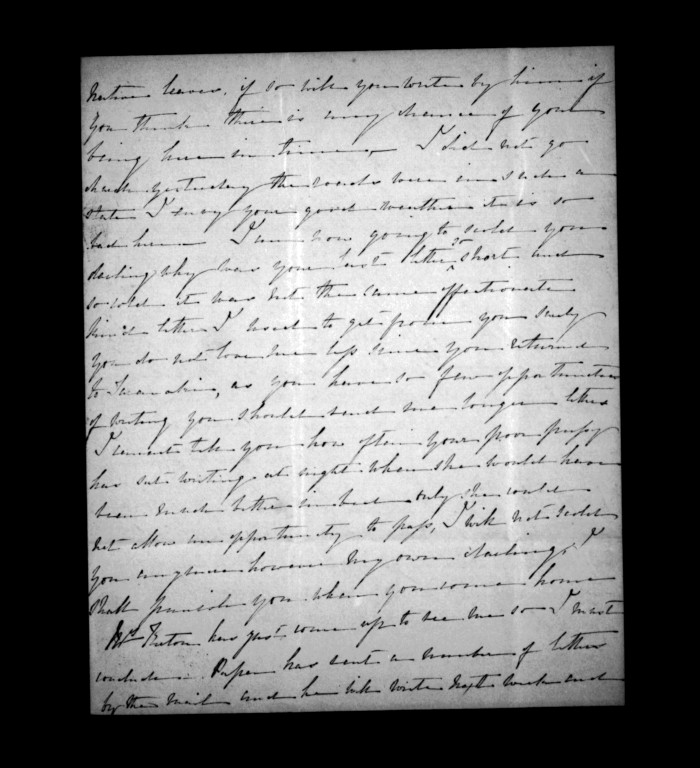 native leaves, if so will you write by him if
you think there is any chance of your
being here in time — I did not go
church yesterday the roads were in such a
state I envy your good weather it is so
bad here — I am now going to scold you
darling why was your last letter so short and
so cold it was not the same affectionate
kind letter I used to get from you surely
you do not love me less since you returned
to as you have so few opportunities
of writing you should send me longer letters
I cannot tell you how often your poor pussy
has sat writing at night when she would have
been much better in bed only she could
not allow an opportunity to pass, I will not scold
you anymore however my own darling, I
shall punish you when you come home
Mrs has just come up to see me so I must
conclude. Papa has sent a number of letters
by the mail and he will write next week and